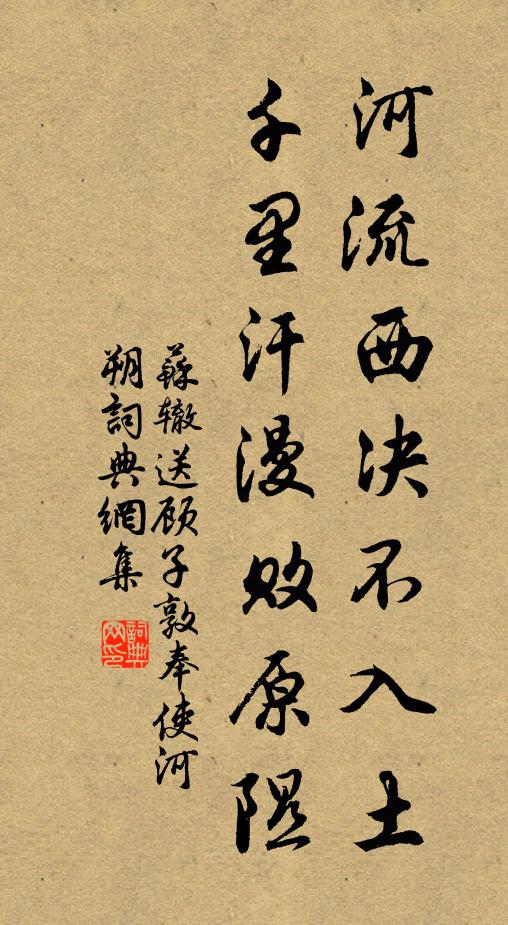 河流西决不入土
千里汗漫败原隰
蘇辙送顾子敦奉使河
朔詞典網集
詞典
网印